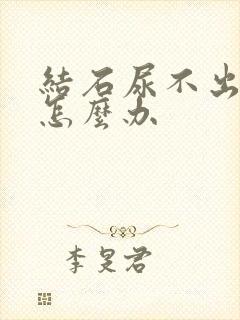 結石尿不出
怎麼办
李旻君